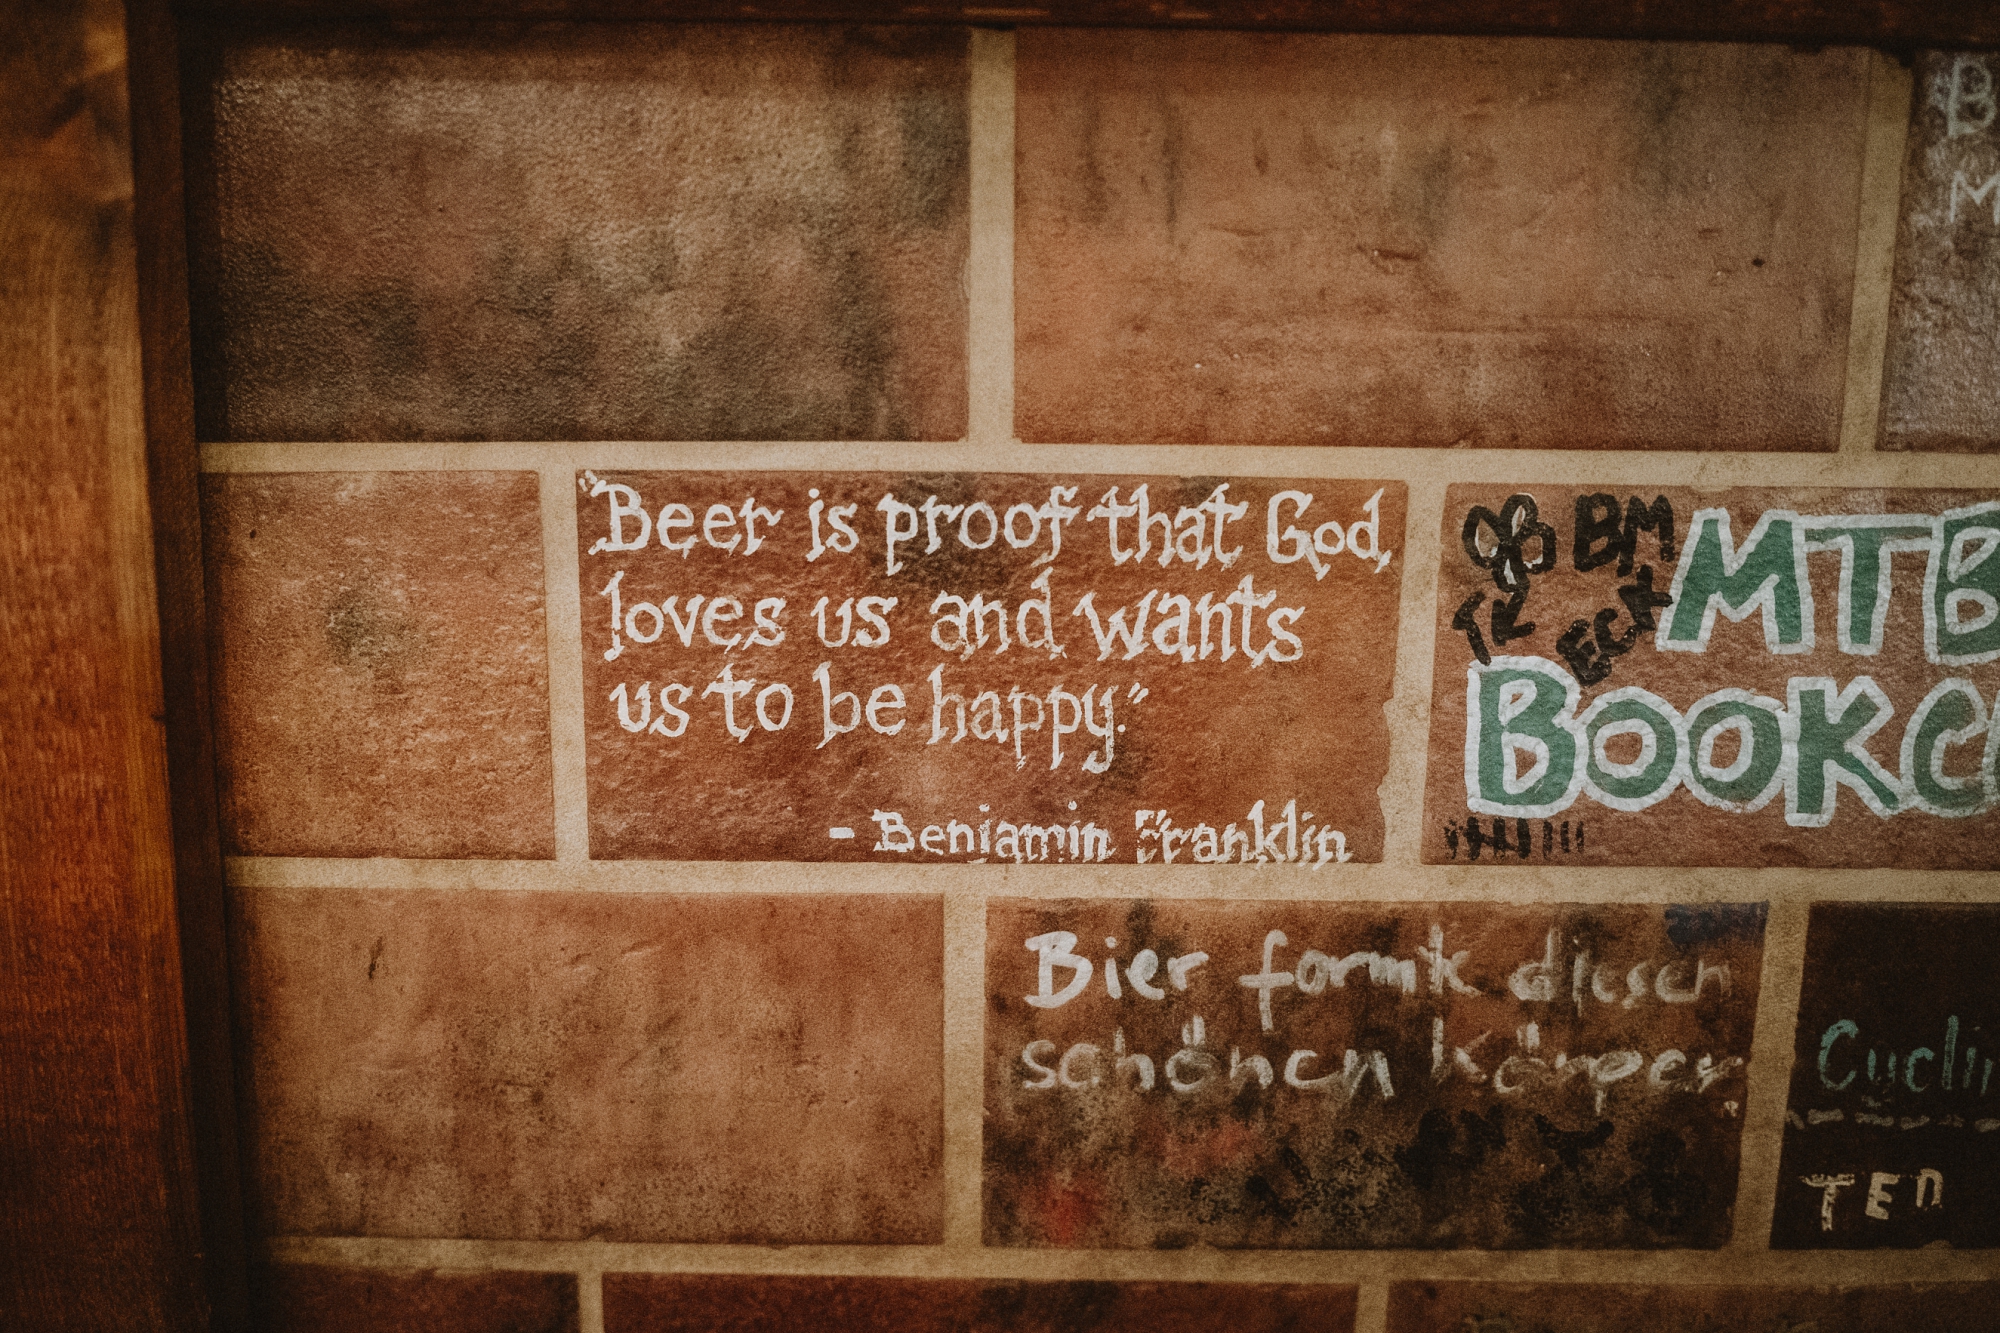 B
M
"Beer is proof that God,
loves us and wants
us to be happy."
- Benjamin Franklin
BM
TR ECK
MTB
BOOKC
Bier formt diesen
schönen Körper
Cyclin
TEN